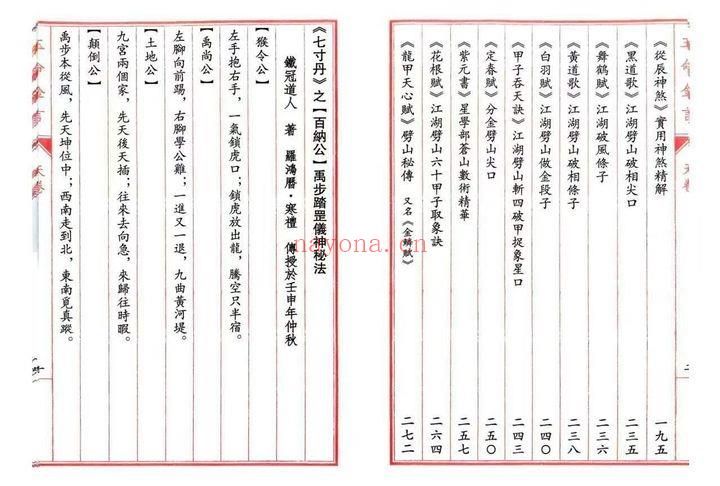 《從辰神煞》實用神煞精解 一九五
《黑道歌》江湖劈山破相尖口 二三五
《舞鶴賦》江湖破風條子 二三六
《黃道歌》江湖劈山破相條子 二三八
《白羽賦》江湖劈山做金段子 二四〇
《甲子吞天訣》江湖劈山斬四破甲捉象星口 二四三
《定春賦》分金劈山尖口 二五〇
《紫元書》星學部蒼山數術精華 二五七
《花根賦》江湖劈山六十甲子取象訣 二六四
《龍甲天心賦》劈山秘傳 又名《金
賦》 二七二
《七寸丹》之【百納公】禹步踏罡儀神秘法
鐵冠道人 著 羅鴻曆·寒禮 傳授於壬申年仲秋
【猴令公】
左手抱右手，一氣鎖虎口；鎖虎放出龍，騰空只半宿。
【禹尚公】
左腳向前踢，右腳學公雞；一進又一退，九曲黃河堤。
【土地公】
九宮兩個家，先天後天插；往來去向急，來歸往時暇。
【顛倒公】
禹步本從風，先天坤位中；西南走到北，東南覓真蹤。
nayona.cn